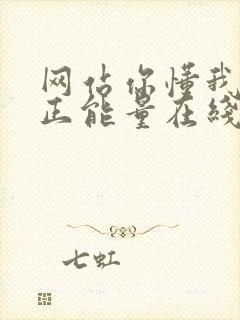 网站你懂我
正能量在线
七虹